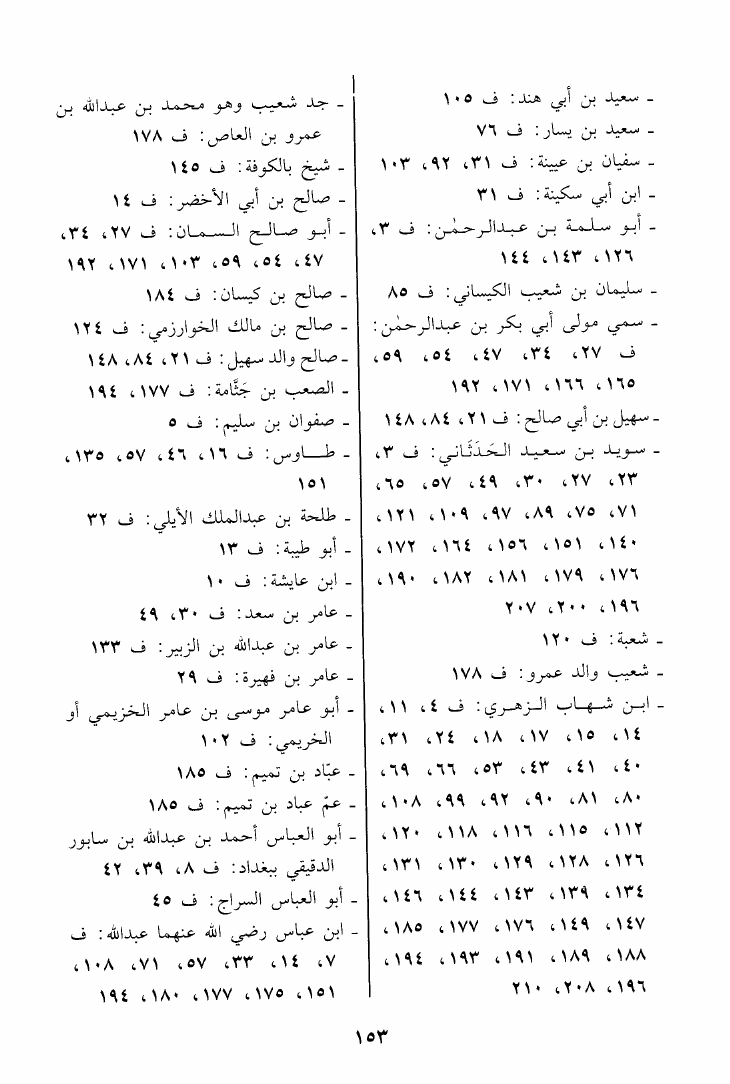 ـ سعيد بن أبي هند: ف ١٠٥
ـ سعيد بن يسار: ف ٧٦
ـ سفيان بن عيينة: ف ٣١، ٩٢، ١٠٣
ـ ابن أبي سكينة: ف ٣١
ـ أبو سلمة بن عبدالرحمٰن: ف ٣،
١٢٦، ١٤٣، ١٤٤
ـ سليمان بن شعيب الكيساني: ف ٨٥
ـ سمي مولى أبي بكر بن عبدالرحمٰن:
ف ٢٧، ٣٤، ٤٧، ٥٤، ٥٩،
١٦٥، ١٦٦، ١٧١، ١٩٢
ـ سهيل بن أبي صالح: ف ٢١، ٨٤، ١٤٨
ـ سويد بن سعيد الحَدَثَاني: ف ٣،
٢٣، ٢٧، ٣٠، ٤٩، ٥٧، ٦٥،
٧١، ٧٥، ٨٩، ٩٧، ١٠٩، ١٢١،
١٤٠، ١٥١، ١٥٦، ١٦٤، ١٧٢،
١٧٦، ١٧٩، ١٨١، ١٨٢، ١٩٠،
١٩٦، ٢٠٠، ٢٠٧
ـ شعبة: ف ١٢٠
ـ شعيب والد عمرو: ف ١٧٨
ـ ابن شهاب الزهري: ف ٤، ١١،
١٤، ١٥، ١٧، ١٨، ٢٤، ٣١،
٤٠، ٤١، ٤٣، ٥٣، ٦٦، ٦٩،
٨٠، ٨١، ٩٠، ٩٢، ٩٩، ١٠٨،
١١٢، ١١٥، ١١٦، ١١٨، ١٢٠،
١٢٦، ١٢٨، ١٢٩، ١٣٠، ١٣١،
١٣٤، ١٣٩، ١٤٣، ١٤٤، ١٤٦،
١٤٧، ١٤٩، ١٧٦، ١٧٧، ١٨٥،
١٨٨، ١٨٩، ١٩١، ١٩٣، ١٩٤،
١٩٦، ٢٠٨، ٢١٠
ـ جد شعيب وهو محمد بن عبدالله بن
عمرو بن العاص: ف ١٧٨
ـ شيخ بالكوفة: ف ١٤٥
ـ صالح بن أبي الأخضر: ف ١٤
ـ أبو صالح السمان: ف ٢٧، ٣٤،
٤٧، ٥٤، ٥٩، ١٠٣، ١٧١، ١٩٢
ـ صالح بن كيسان: ف ١٨٤
ـ صالح بن مالك الخوارزمي: ف ١٢٤
ـ صالح والد سهيل: ف ٢١، ٨٤، ١٤٨
ـ الصعب بن جَثَّامة: ف ١٧٧، ١٩٤
ـ صفوان بن سليم: ف ٥
ـ طاوس: ف ١٦، ٤٦، ٥٧، ١٣٥،
١٥١
ـ طلحة بن عبدالملك الأيلي: ف ٣٢
ـ أبو طيبة: ف ١٣
ـ ابن عايشة: ف ١٠
ـ عامر بن سعد: ف ٣٠، ٤٩
ـ عامر بن عبدالله بن الزبير: ف ١٣٣
ـ عامر بن فهيرة: ف ٢٩
ـ أبو عامر موسى بن عامر الخزيمي أو
الخريمي: ف ١٠٢
ـ عبّاد بن تميم: ف ١٨٥
ـ عمّ عباد بن تميم: ف ١٨٥
ـ أبو العباس أحمد بن عبدالله بن سابور
الدقيقي ببغداد: ف ٨، ٣٩، ٤٢
ـ أبو العباس السراج: ف ٤٥
ـ ابن عباس رضي الله عنهما عبدالله: ف
٧، ١٤، ٣٣، ٥٧، ٧١، ١٠٨،
١٥١، ١٧٥، ١٧٧، ١٨٠، ١٩٤
١٥٣